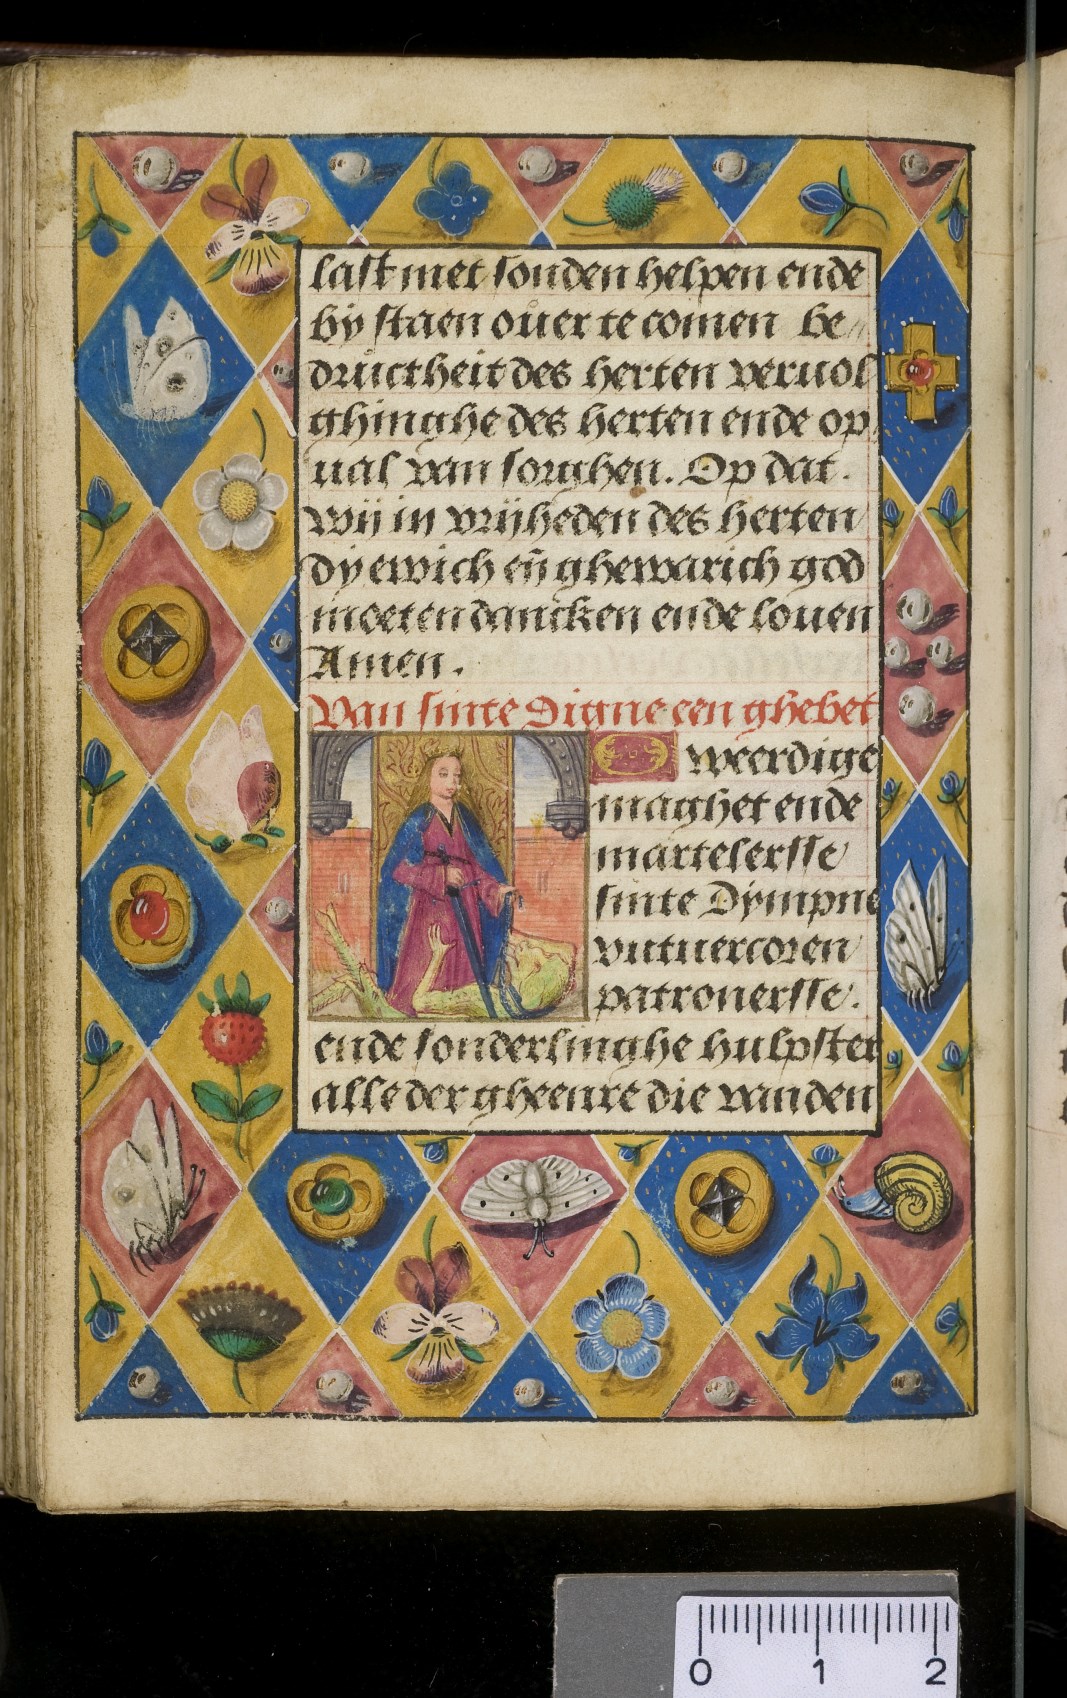 last met sonden helpen ende
bÿ staen ouer te comen be⸗
dructheit des herten veruol
ghinghe des herten ende op
ual van sorghen. Op dat.
wÿ in vrÿheden des herten
dÿ ewich eñ ghewarich god
moeten dancken ende louen
Amen.
Van sinte Digne een ghebet
O weerdige
maghet ende
martelersse
sinte Dÿmpne
vutuercoren
patronersse.
ende sonderlinghe hulpster
alle der gheenre die vanden
0 1 2